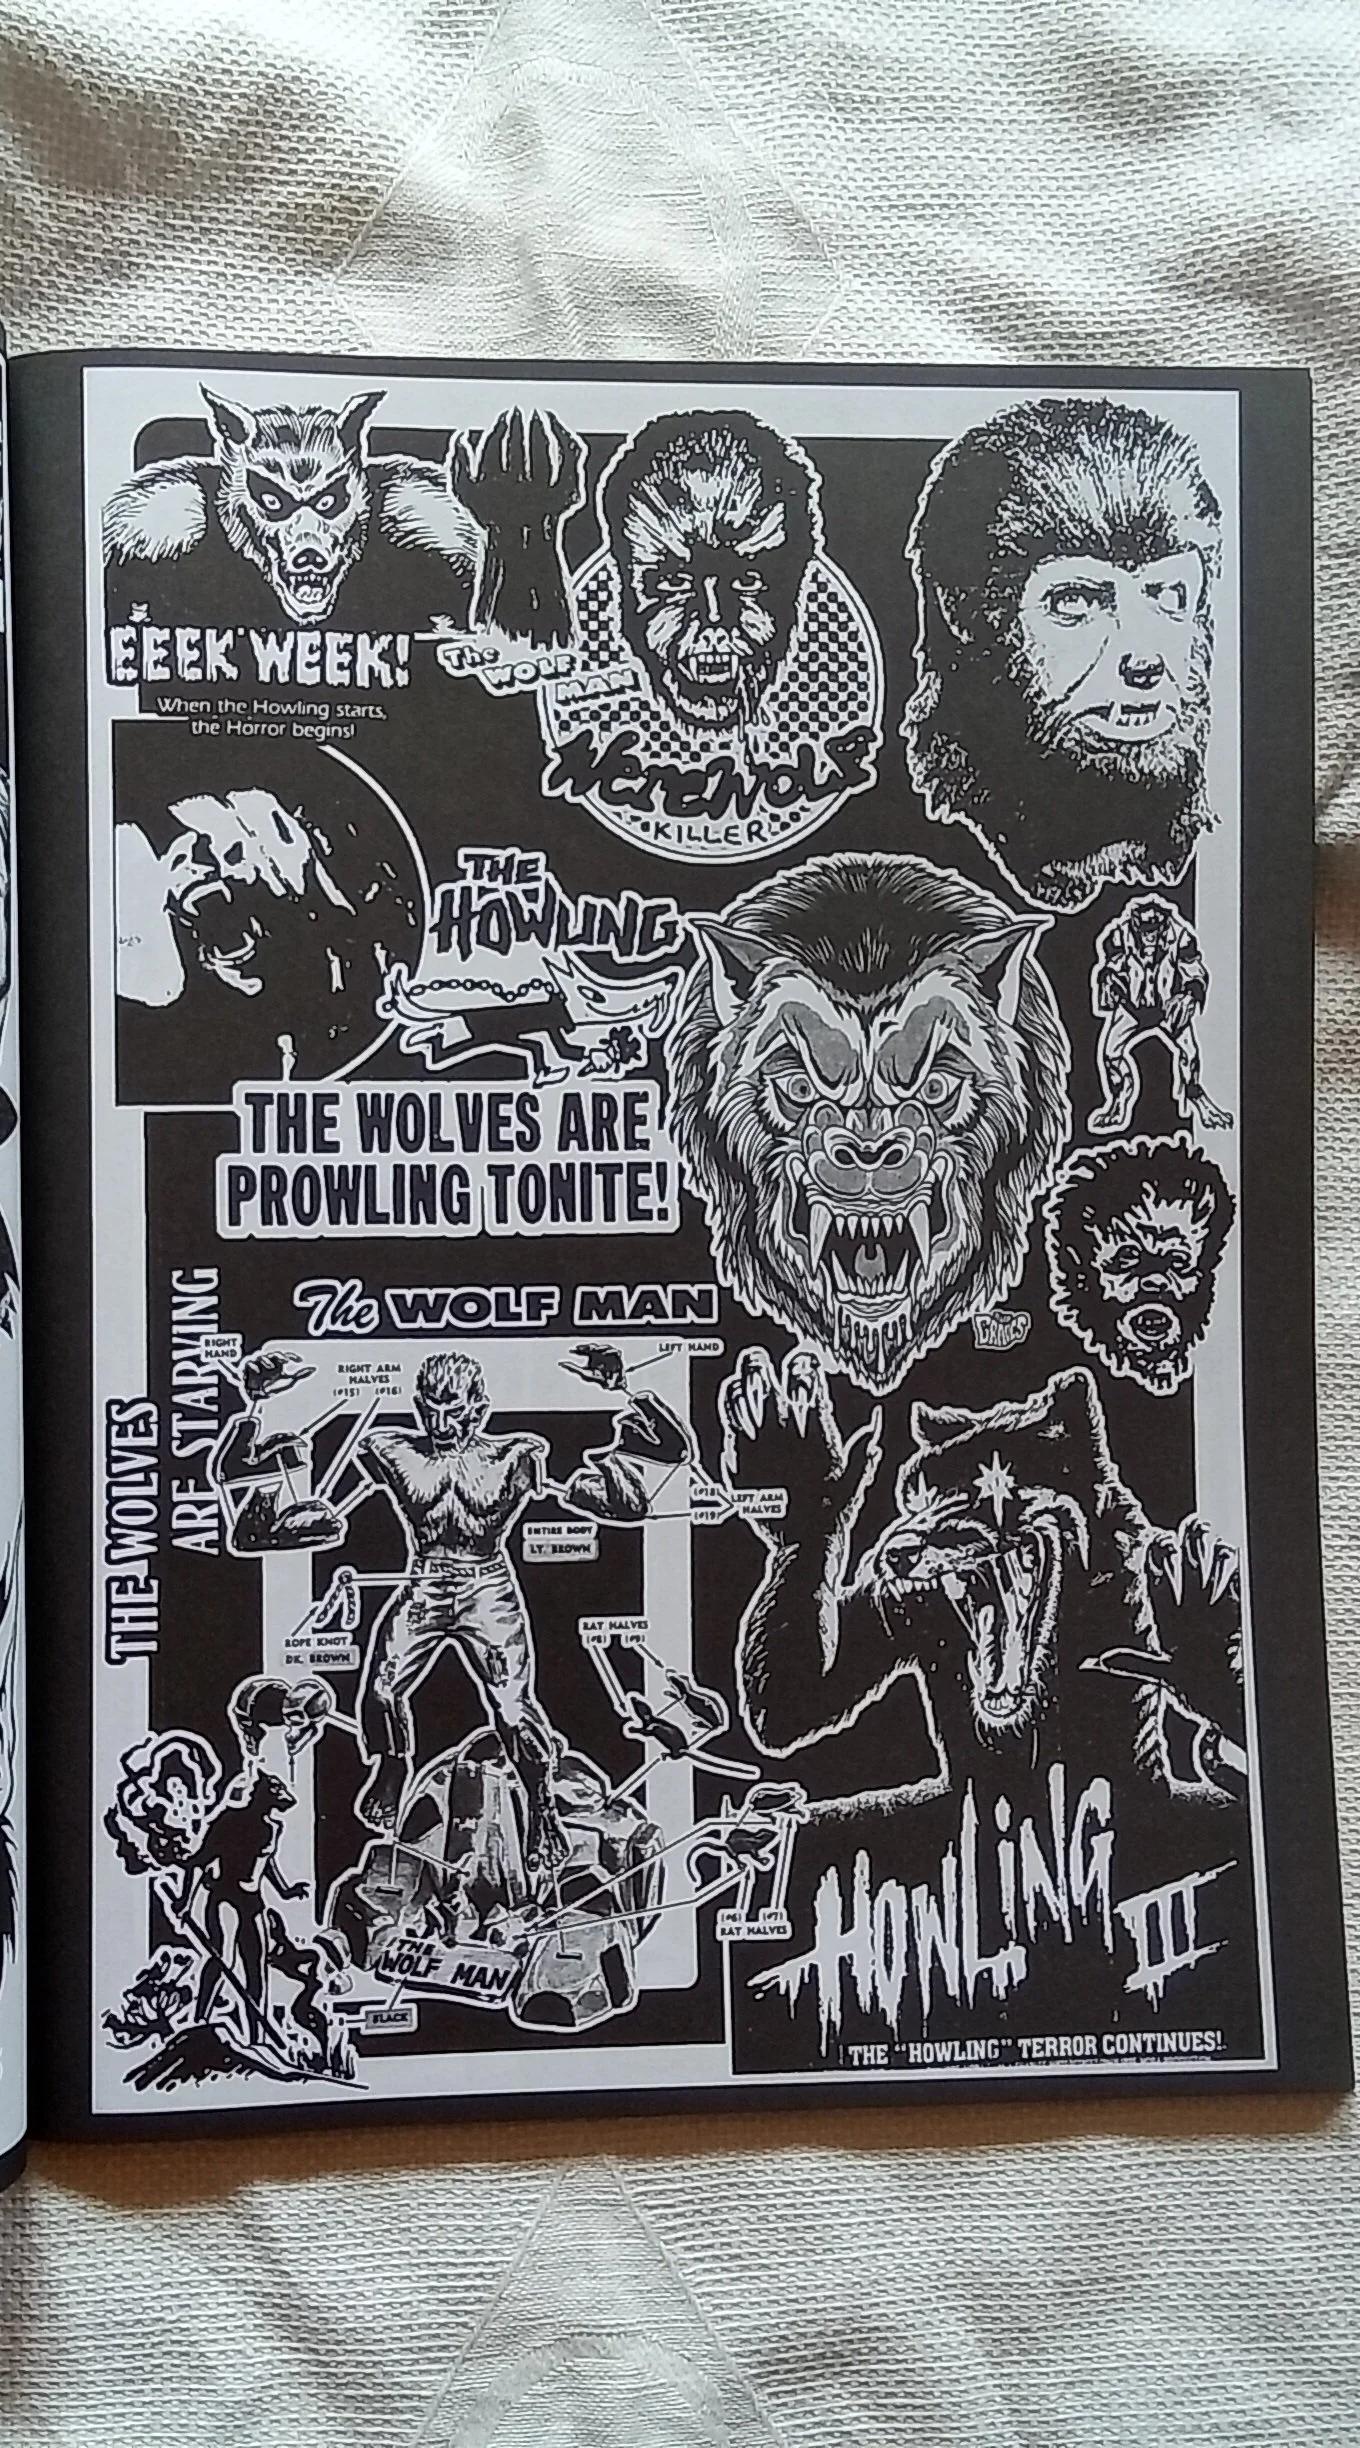 EEEK WEEK!
When the Howling starts,
the Horror begins!
The
WOLF
MAN
WEREWOLF
KILLER
THE
HOWLING
THE WOLVES ARE
PROWLING TONITE!
THE WOLVES
ARE STARVING
The WOLF MAN
RIGHT
HAND
RIGHT ARM
HALVES
(#15) (#16)
LEFT HAND
(#18)
(#19)
LEFT ARM
HALVES
ENTIRE BODY
LT. BROWN
ROPE KNOT
DK. BROWN
RAT HALVES
(#8) (#9)
(#6) (#7)
RAT HALVES
THE
WOLF MAN
BLACK
HOWLING III
THE "HOWLING" TERROR CONTINUES!